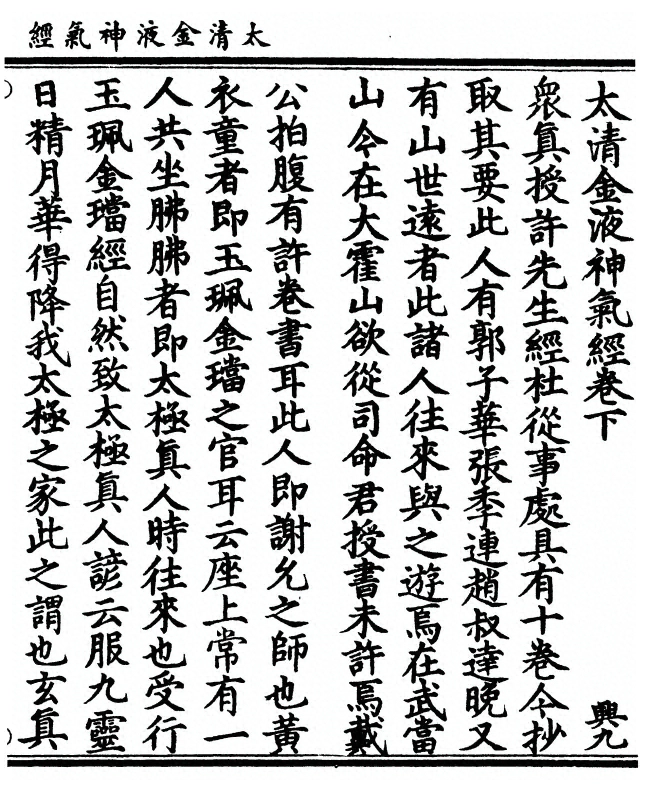 太清金液神氣經
太清金液神氣經卷下 興九
衆真授許先生經杜從事處具有十卷今抄
取其要此人有郭子華張季連趙叔達晚又
有山世遠者此諸人往來與之遊焉在武當
山今在大霍山欲從司命君授書未許焉戴
公拍腹有許卷書耳此人即謝允之師也黃
衣童者即玉珮金璫之官耳云座上常有一
人共坐胇胇者即太極真人時往來也受行
玉珮金璫經自然致太極真人諺云服九靈
日精月華得降我太極之家此之謂也玄真